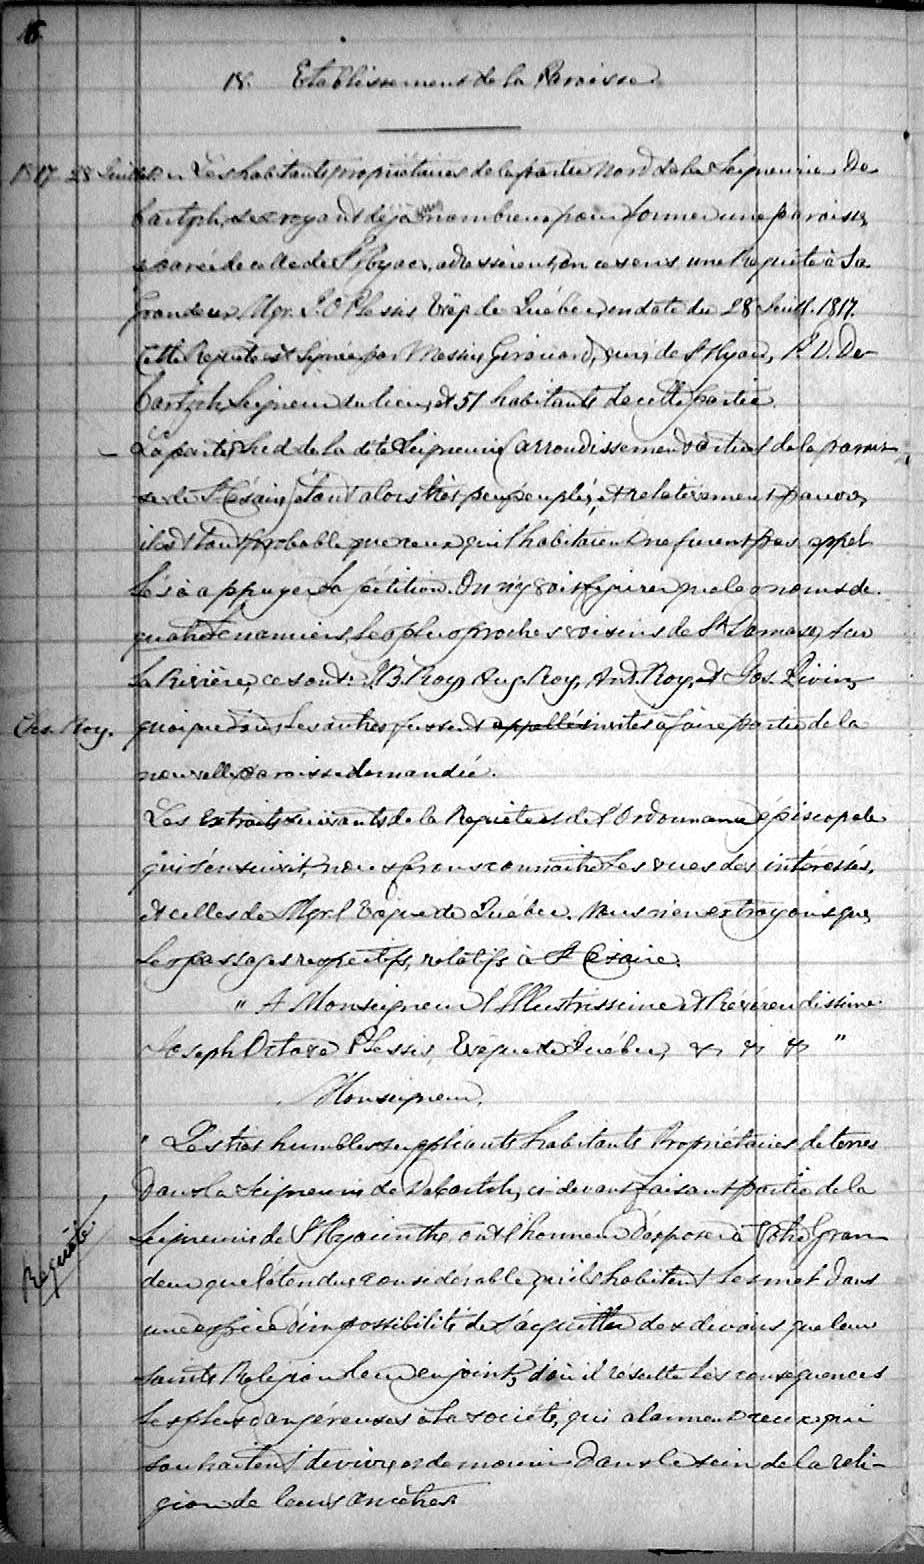 18. Etablissement de la Paroisse
1817 28 Juillet. Les habitants propriétaires de la partie Nord de la Seigneurie De-
bartzch, se croyant déjà nombreux pour former une paroisse
séparée de celle de St Hyac., adressèrent, en ce sens, une Requête à Sa
Grandeur Mgr. J. O Plessis Evêq. de Québec, en date du 28 Juill. 1817.
Cette Requête est signée par Messire Girouard, curé de St Hyac., P. D. De-
bartzch, Seigneur du lieu, et 51 habitants de cette partie.
– La partie Sud de la dite Seigneurie (arrondissement actuel de la parois-
se de St Césaire) étant alors très peu peuplée, et relativement pauvre,
il est tout probable que ceux qui l'habitaient ne furent pas appel-
lés à appuyer la pétition. On n'y voit figurer que les noms de
quatre, les plus proches voisins de St Damase, sur
la Rivière, ce sont: J. B. Roy, Aug. Roy, And. Roy, et Jos.
Chs. Roy.
quoique tous les autres fussent appellés invités à faire partie de la
nouvelle paroisse demandée.
Les extraits suivants de la Requête et de l'Ordonnance épiscopale
qui s'ensuivit, nous feront connaître les vues des intéressés,
et celles de Mgr l'Evêque de Québec. Nous n'en extrayons que
les passages respectifs, relatifs à St Césaire.
" A Monseigneur l'Illustrissime et Révérendissime
Joseph Octave Plessis, Evêque de Québec, &c &c &c "
Monseigneur,
Requête
" Les très humbles suppliants habitants Propriétaires de terres
dans la Seigneurie de Debartzch, ci-devant faisant partie de la
Seigneurie de St Hyacinthe, ont l'honneur d'exposer à Votre Gran-
deur que l'étendue considérable qu'ils habitent les met dans
une espèce d'impossibilité de s'acquitter des devoirs que leur
sainte Religion leur enjoint, d'où il résulte les conséquences
les plus dangéreuses à la société, qui alarment ceux qui
souhaitent de vivre et de mourir dans le sein de la reli-
gion de leurs ancêtres